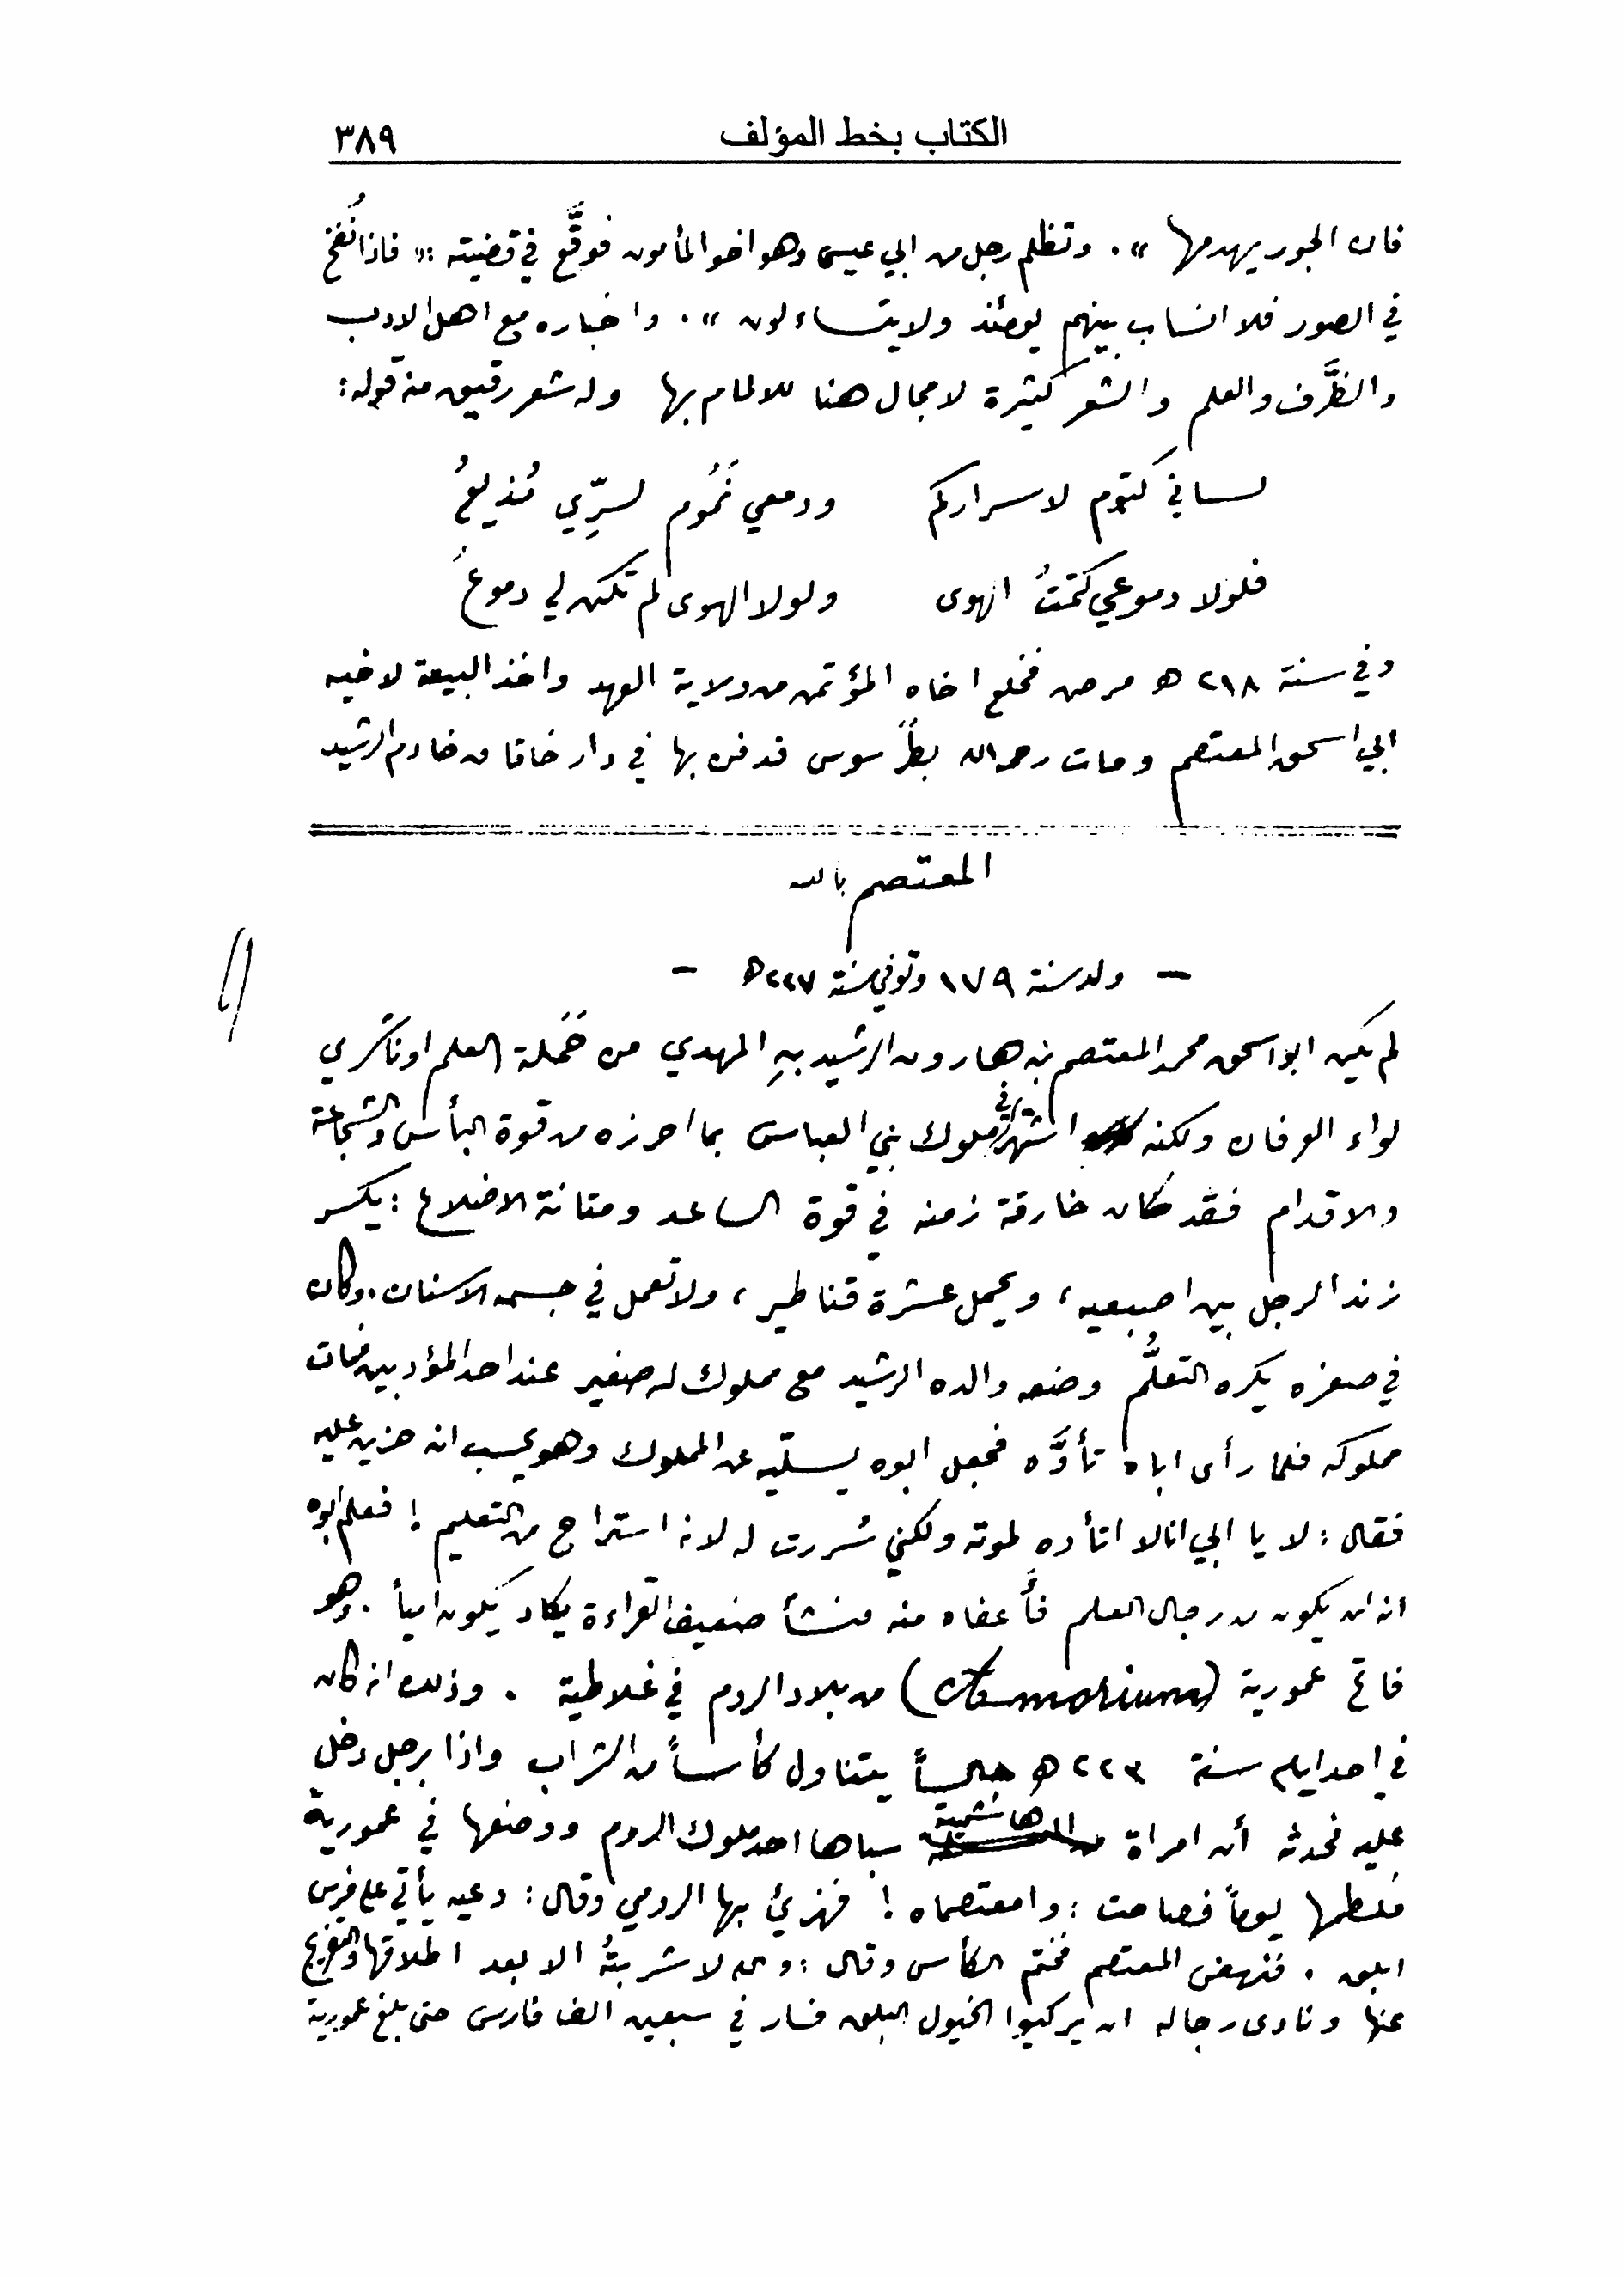 الكتاب بخط المؤلف ٣٨٩
فان الجور يهدمها » . وتظلم رجل من ابي عيسى وهو اخو المأمون فوقَّع في قضيته : « فاذا نُفخ
في الصور فلا انساب بينهم يومئذ ولا يتساءلون » . واخباره مع اهل الادب
والظَّرف والعلم والشعر كثيرة لا مجال هنا للالمام بها وله شعر رقيق منه قوله :
لساني كتوم لاسراركم ودمعي نَمُوم لسرِّي مُذيعُ
فلولا دموعي كتمتُ الهوى ولولا الهوى لم تكن لي دموعُ
وفي سنة ٢١٨ ه مرض فخلع اخاه المؤتمن من ولاية العهد واخذ البيعة لاخيه
ابي اسحق المعتصم ومات رحمه الله بطَرَسوس فدفن بها في دار خاقان خادم الرشيد
المعتصم بالله
– ولد سنة ١٧٩ وتوفي سنة ٢٢٧ ه –
لم يكن ابو اسحق محمد المعتصم بن هارون الرشيد بن المهدي من حَمَلة العلم او ناشري
لواء العرفان ولكنه اشتهر في ملوك بني العباس بما احرزه من قوة البأس والشجاعة
والاقدام فقد كان خارقة زمنه في قوة الساعد ومتانة الاضلاع : يكسر
زند الرجل بين اصبعيه ، ويحمل عشرة قناطير ، ولا تعمل في جسمه الاسنان . وكان
في صغره يكره التعلُّم وضعه والده الرشيد مع مملوك له صغير عند احد المؤدبين فمات
مملوكه فلما رأى اباه تأوَّه فجعل ابوه يسلّيه عن المملوك وهو يحسب انه حزين عليه
فقال : لا يا ابي انا لا اتأوه لموته ولكني سُررت له لانه استراح من التعليم ! فعلم ابوه
انه لن يكون من رجال العلم فأَعفاه منه فنشأ ضعيف القراءة يكاد يكون امياً . وهو
فاتح عمورية (Amorium) من بلاد الروم في غلاطية . وذلك انه كان
في احد ايام سنة ٢٢٣ ه جالساً يتناول كأساً من الشراب واذا برجل دخل
عليه فحدثه أن امراة هاشمية سباها احد ملوك الروم ووضعها في عمورية
فلطمها يوماً فصاحت : وامعتصماه ! فهزئ بها الرومي وقال : دعيه يأتي على فرس
ابلق . فنهض المعتصم فختم الكأس وقال : والله لا شربتُه الا بعد اطلاقها والتفريج
عنها ونادى رجاله ان يركبوا الخيول البلق فسار في سبعين الفا فارس حتى بلغ عمورية